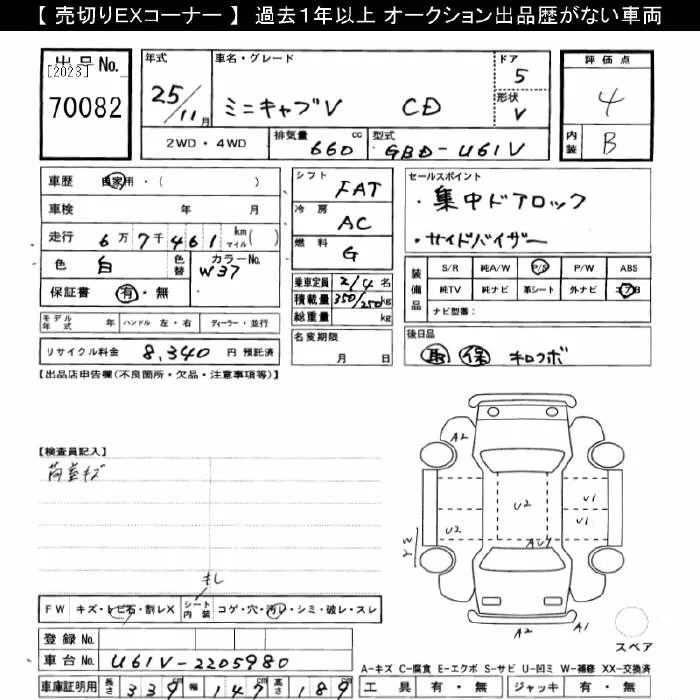 【 売切りEXコーナー 】 過去1年以上 オークション出品歴がない車両
出品No. [2023] 70082
年式 25/11月
車名・グレード ミニキャブV CD
ドア 5
形状 V
評価点 4
内装 B
2WD・4WD 排気量 660 cc 型式 GBD-U61V
車歴 自家用・( )
車検 年 月
走行 6万7千461 km マイル( )
色 白 色替 カラーNo. W37
保証書 有・無
シフト FAT
冷房 AC
燃料 G
乗車定員 2/4名
積載量 350/250kg
総重量 kg
セールスポイント
・集中ドアロック
・サイドバイザー
装備品 S/R 純A/W P/S P/W ABS
純TV 純ナビ 革シート 外ナビ エアB
ナビ型番:
モデル年式 年 ハンドル 左・右 ディーラー・並行
リサイクル料金 8,340 円 預託済
名変期限 月 日
後日品 取 保 キロクボ
【出品店申告欄(不良箇所・欠品・注意事項等)】
【検査員記入】
荷室キズ
A2
U2 U1
U2 U1
W2
AU1
A2 A1
スペア
モレ
FW キズ・トビ石・割レX シート内装 コゲ・穴・汚レ・シミ・破レ・スレ
登録 No.
車台 No. U61V-2205980
A-キズ C-腐食 E-エクボ S-サビ U-凹ミ W-補修 XX-交換済
車庫証明用 長さ 339cm 幅 147cm 高さ 189cm 工具 有・無 ジャッキ 有・無